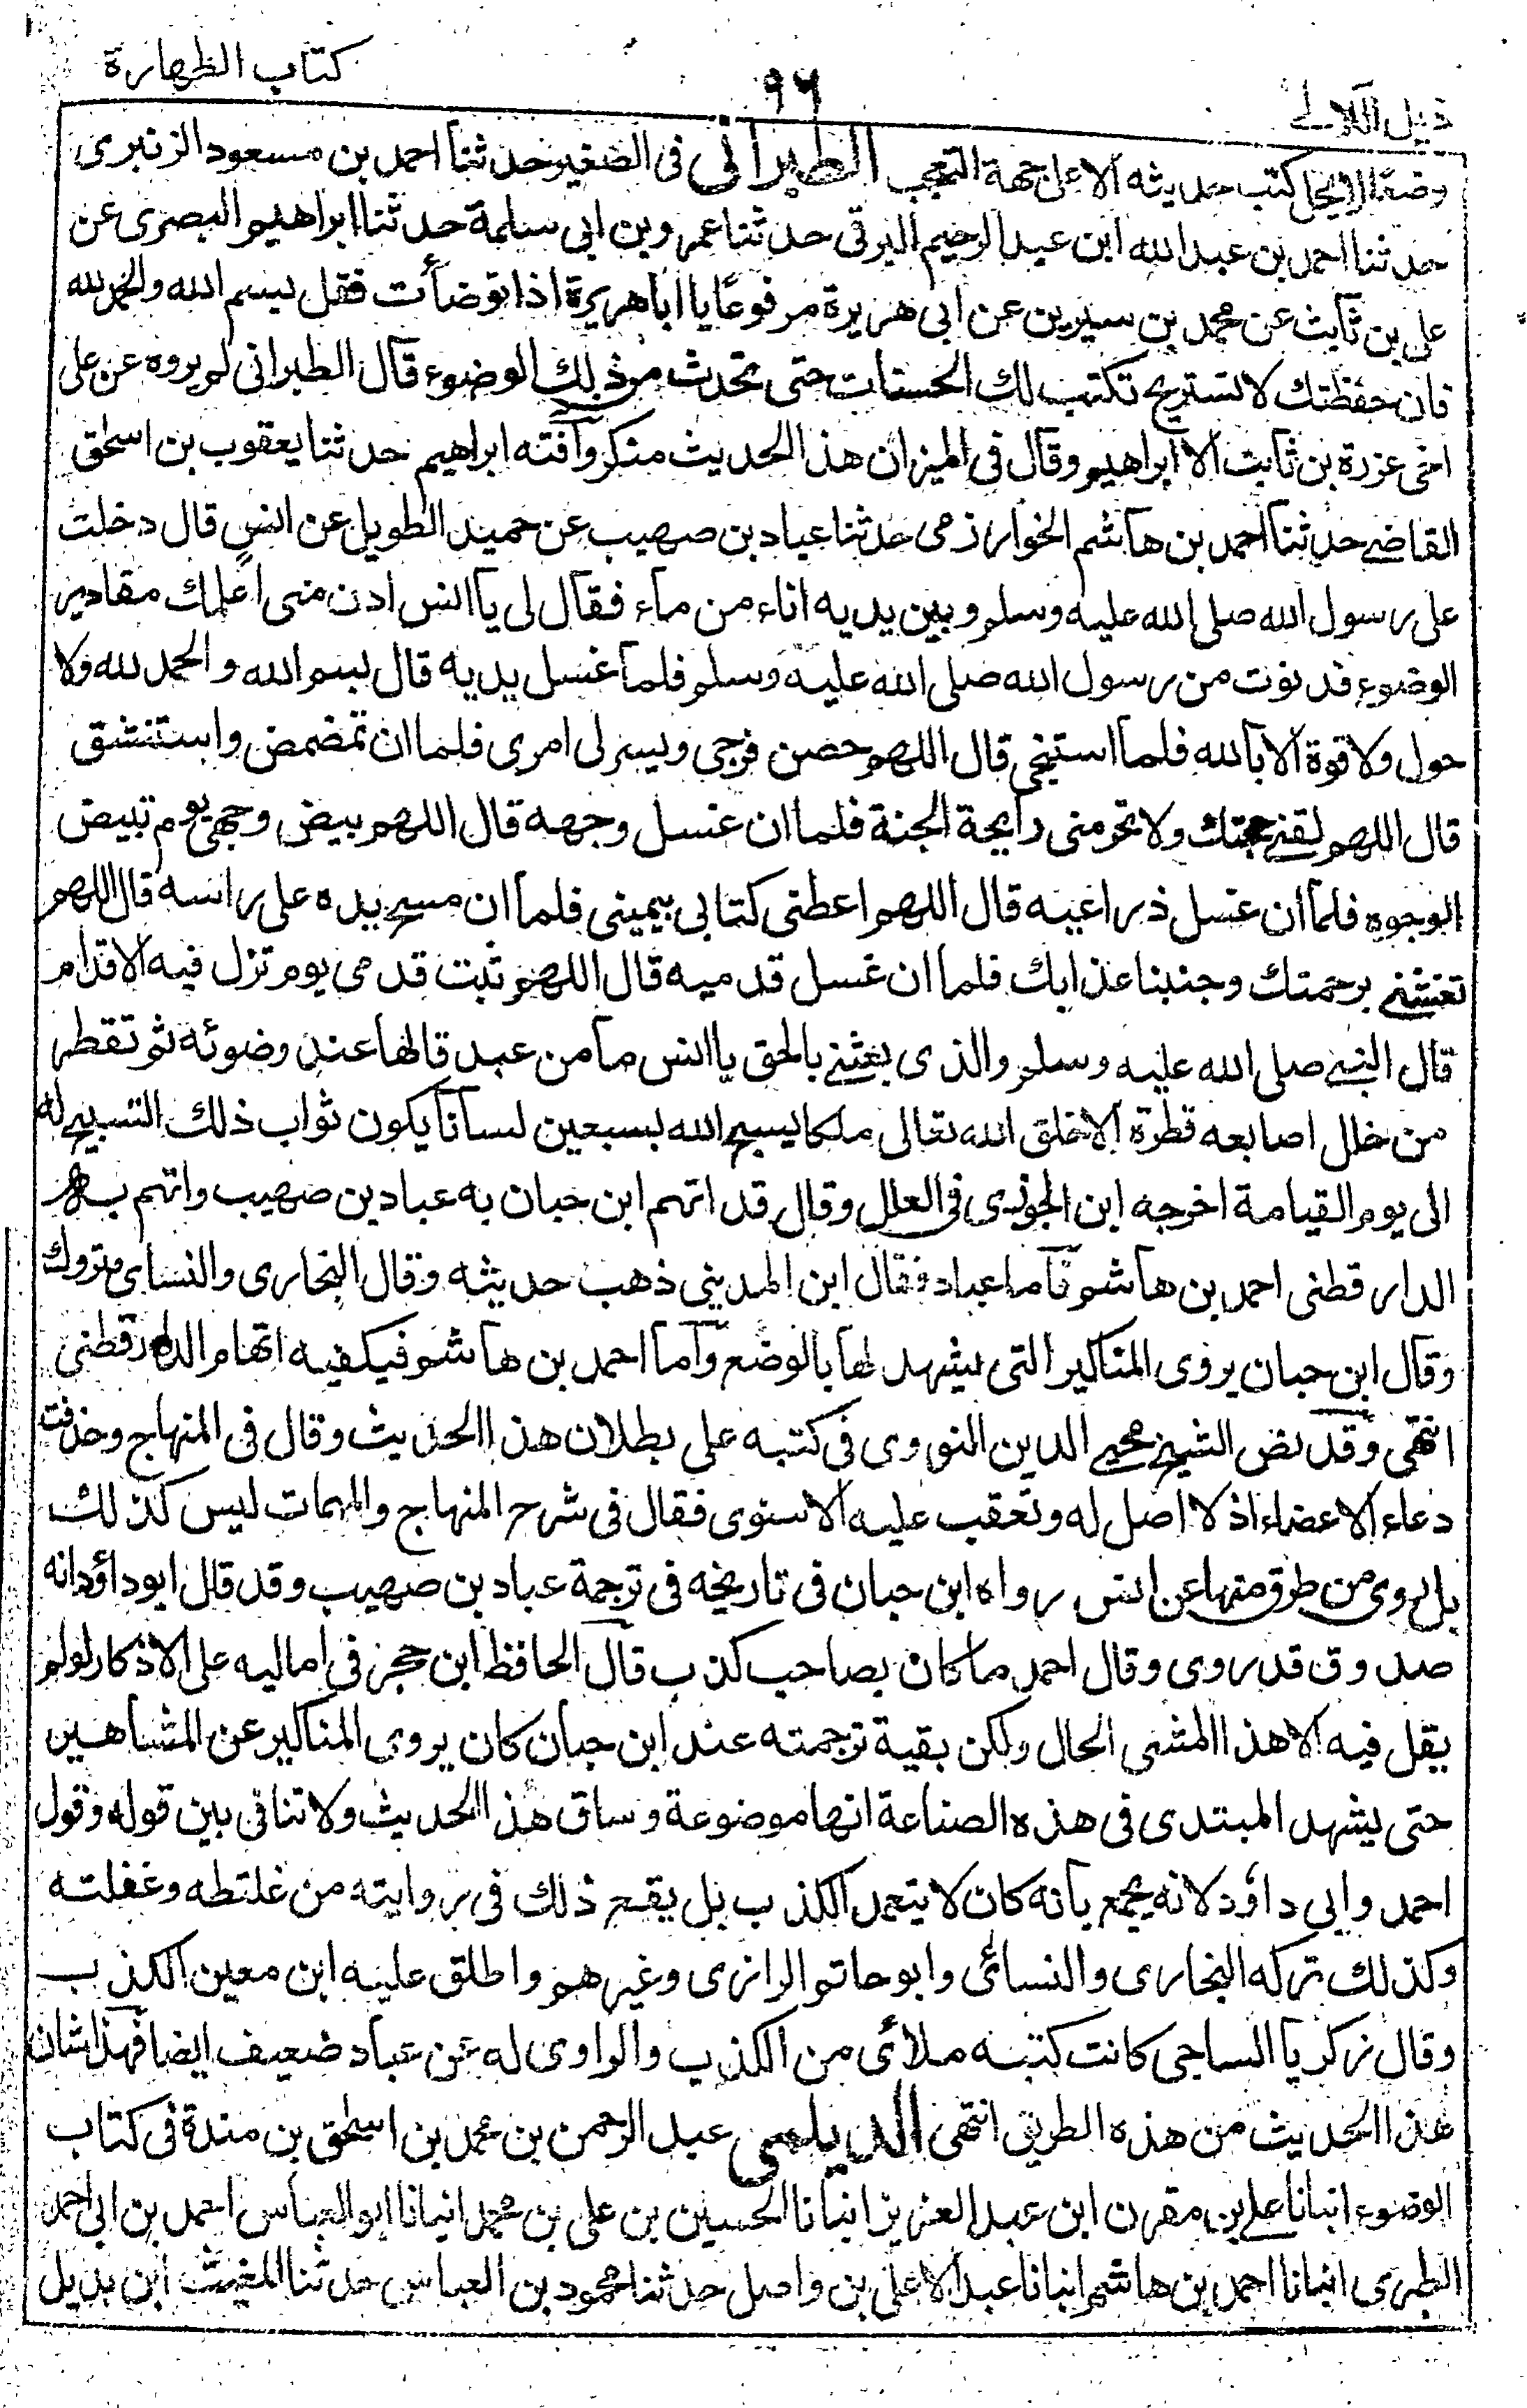 كتاب الطهارة
٩٦
ذيل اللآلى
وضعًا لا يحل كتب حديثه الا على جهة التعجب الطبرانى فى الصغير حدثنا احمد بن مسعود الزنبرى
حدثنا احمد بن عبد الله ابن عبد الرحيم البرقى حدثنا عمرو بن ابى سلمة حدثنا ابراهيم البصرى عن
على بن ثابت عن محمد بن سيرين عن ابى هريرة مرفوعًا يا ابا هريرة اذا توضأت فقل بسم الله والحمد لله
فان حفظتك لا تستريح تكتب لك الحسنات حتى تحدث من ذلك الوضوء قال الطبرانى لم يروه عن على
اخى عزرة بن ثابت الا ابراهيم وقال فى الميزان هذا الحديث منكر وآفته ابراهيم حدثنا يعقوب بن اسحق
القاضے حدثنا احمد بن هاشم الخوارزمى حدثنا عباد بن صهيب عن حميد الطويل عن انس قال دخلت
على رسول الله صلى الله عليه وسلم وبين يديه اناء من ماء فقال لى يا انس ادن منى اعلمك مقادير
الوضوء فدنوت من رسول الله صلى الله عليه وسلم فلما غسل يديه قال بسم الله والحمد لله ولا
حول ولا قوة الا بالله فلما استنجى قال اللهم حصن فرجى ويسر لى امرى فلما ان تمضمض واستنشق
قال اللهم لقنے حجتك ولا تحرمنى رايحة الجنة فلما ان غسل وجهه قال اللهم بيض وجهى يوم تبيض
الوجوه فلما ان غسل ذراعيه قال اللهم اعطنى كتابى بيمينى فلما ان مسح بيده على راسه قال اللهم
تغشنے برحمتك وجنبنا عذابك فلما ان غسل قدميه قال اللهم ثبت قدمى يوم تزل فيه الاقدام
قال النبے صلى الله عليه وسلم والذى بعثنے بالحق يا انس ما من عبد قالها عند وضوئه ثم تقطر
من خلل اصابعه قطرة الا خلق الله تعالى ملكا يسبح الله بسبعين لسانا يكون ثواب ذلك التسبيح له
الى يوم القيامة اخرجه ابن الجوزى فى العلل وقال قد اتهم ابن حبان به عباد بن صهيب واتهم به
الدارقطنى احمد بن هاشم فاما عباد فقال ابن المدينى ذهب حديثه وقال البخارى والنساى متروك
وقال ابن حبان يروى المناكير التى يشهد لها بالوضع واما احمد بن هاشم فيكفيه اتهام الدارقطنى
انتهى وقد نص الشيخ محيے الدين النووى فى كتبه على بطلان هذا الحديث وقال فى المنهاج وحذفت
دعاء الاعضاء اذ لا اصل له وتعقب عليه الاسنوى فقال فى شرح المنهاج والمهمات ليس كذلك
بل روى من طرق منها عن انس رواه ابن حبان فى تاريخه فى ترجمة عباد بن صهيب وقد قال ابو داؤد انه
صدوق قد روى وقال احمد ما كان بصاحب كذب قال الحافظ ابن حجر فى اماليه على الاذكار لو لم
يقل فيه الا هذا المشى الحال ولكن بقية ترجمته عند ابن حبان كان يروى المناكير عن المشاهير
حتى يشهد المبتدى فى هذه الصناعة انها موضوعة وساق هذا الحديث ولا تنافى بين قوله وقول
احمد وابى داؤد لانه يجمع بانه كان لا يتعمد الكذب بل يقع ذلك فى روايته من غلطه وغفلته
وكذلك تركه البخارى والنسائى وابو حاتم الرازى وغيرهم واطلق عليه ابن معين الكذب
وقال زكريا الساجى كانت كتبه ملأى من الكذب والراوى له عن عباد ضعيف ايضا فهذا شان
هذا الحديث من هذه الطريق انتهى الديلمى عبد الرحمن بن محمد بن اسحق بن مندة فى كتاب
الوضوء انبانا علے بن مقرن ابن عبد العزيز انبانا الحسين بن على بن محمد انبانا ابو العباس احمد بن ابى احمد
الطبرى انبانا احمد بن هاشم انبانا عبد الاعلى بن واصل حدثنا محمود بن العباس حدثنا المغيث ابن بديل